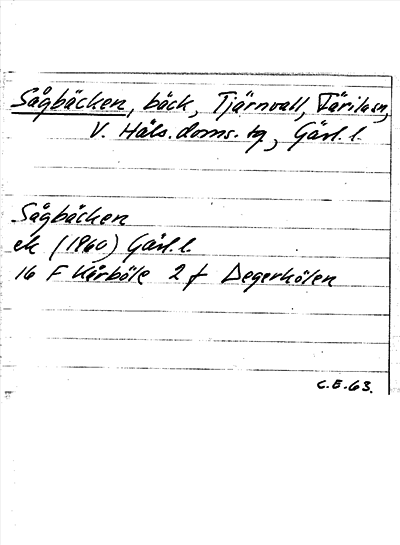 Sågbäcken, bäck, Tjärnvall, Färila sn,
V. Häls. doms. tg, Gävl. l.
Sågbäcken
ek (1960) Gävl. l.
16 F Kårböle 2 f Degerkölen
C.E.63.